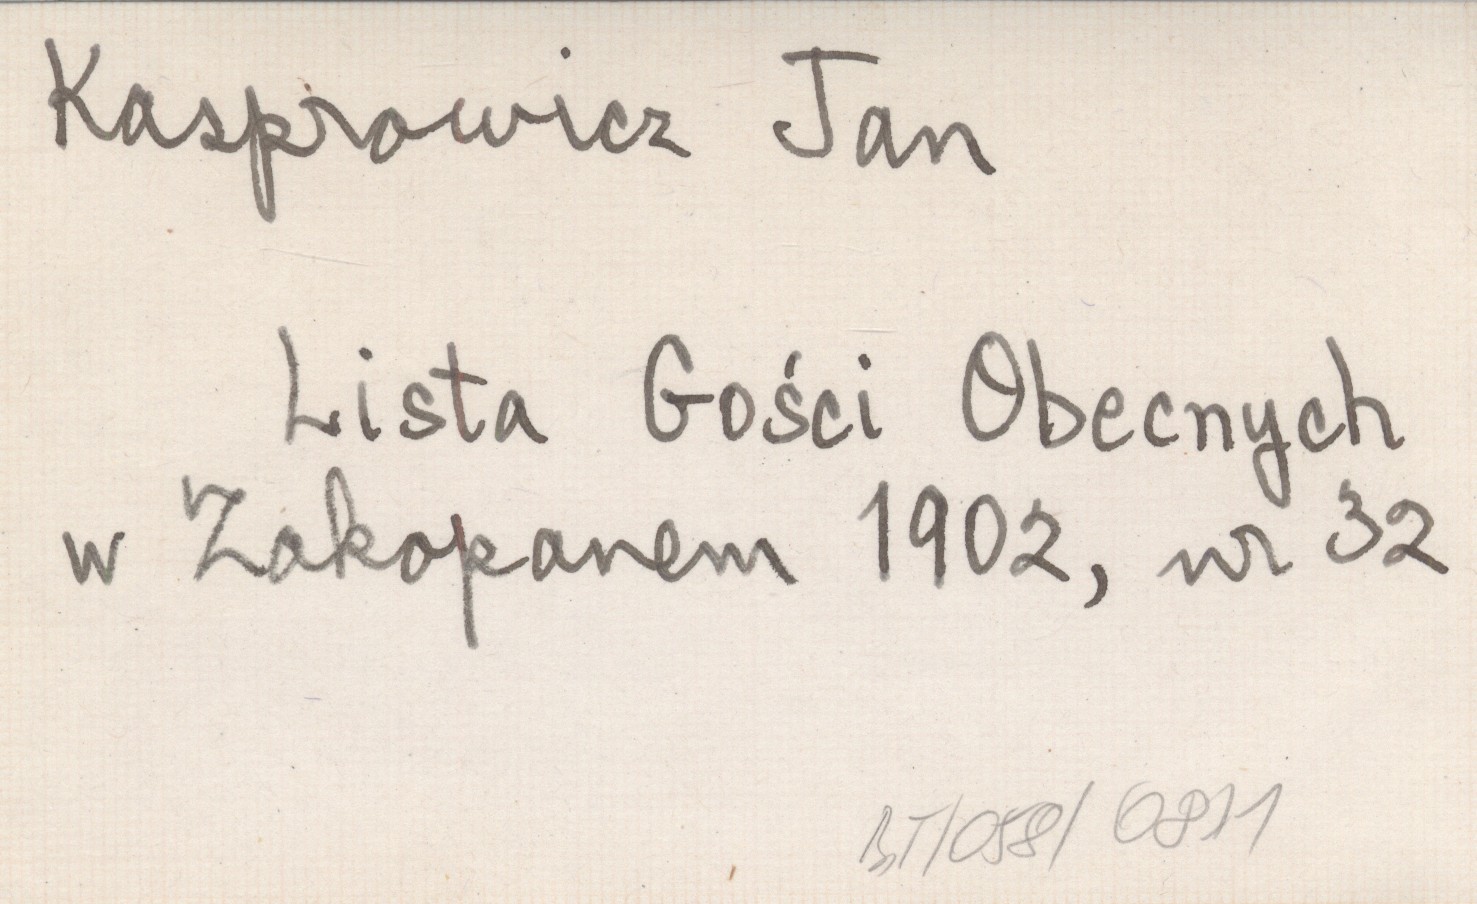 Kasprowicz Jan
Lista Gości Obecnych
w Zakopanem 1902, nr 32
BT/058/